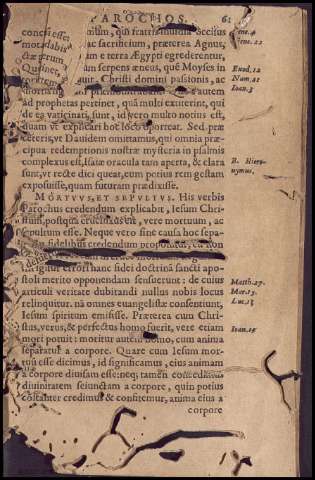 PAROCHOS. 61
Gene. 4
Gene. 22
ac sacrificium, præterea Agnus,
e terra Ægypti egrederentur,
serpens æneus, quē Moyses in
Exod. 12
Num. 21
Ioan. 3
Christi domini passionis, ac
autem
ad prophetas pertinet, quā multi extiterint, qui
de ea vaticinati sunt, id vero multo notius est,
quam vt explicari hoc loco oporteat. Sed præ
ceteris, vt Dauidem omittamus, qui omnia præ-
cipua redemptionis nostræ mysteria in psalmis
complexus est, Isaiæ oracula tam aperta, & clara
B. Hiero-
nymus.
sunt, vt recte dici queat, eum potius rem gestam
exposuisse, quam futuram prædixisse.
MORTVVS, ET SEPVLTVS. His verbis
Parochus credendum explicabit, Iesum Chri-
stum, postqua crucifixus est, vere mortuum, ac
sepultum esse. Neque vero sine causa hoc sepa-
fidelibus credendum proponitur,
erigitur errori hanc fidei doctrinā sancti apo-
stoli merito opponendam senserunt: de cuius
articuli veritate dubitandi nullus nobis locus
Matth. 27.
Mar. 15.
Luc. 23
relinquitur. nā omnes euangelistæ consentiunt,
Iesum spiritum emisisse. Præterea cum Chri-
stus, verus, & perfectus homo fuerit, vere etiam
Ioan. 19
mori potuit: moritur autem homo, cum anima
separatur a corpore. Quare cum Iesum mor-
tuū esse dicimus, id significamus, eius animam
a corpore diuisam esse; neq; tamen concedimus
diuinitatem seiunctam a corpore, quin potius
cōstanter credimus & confitemur, anima eius a
corpore